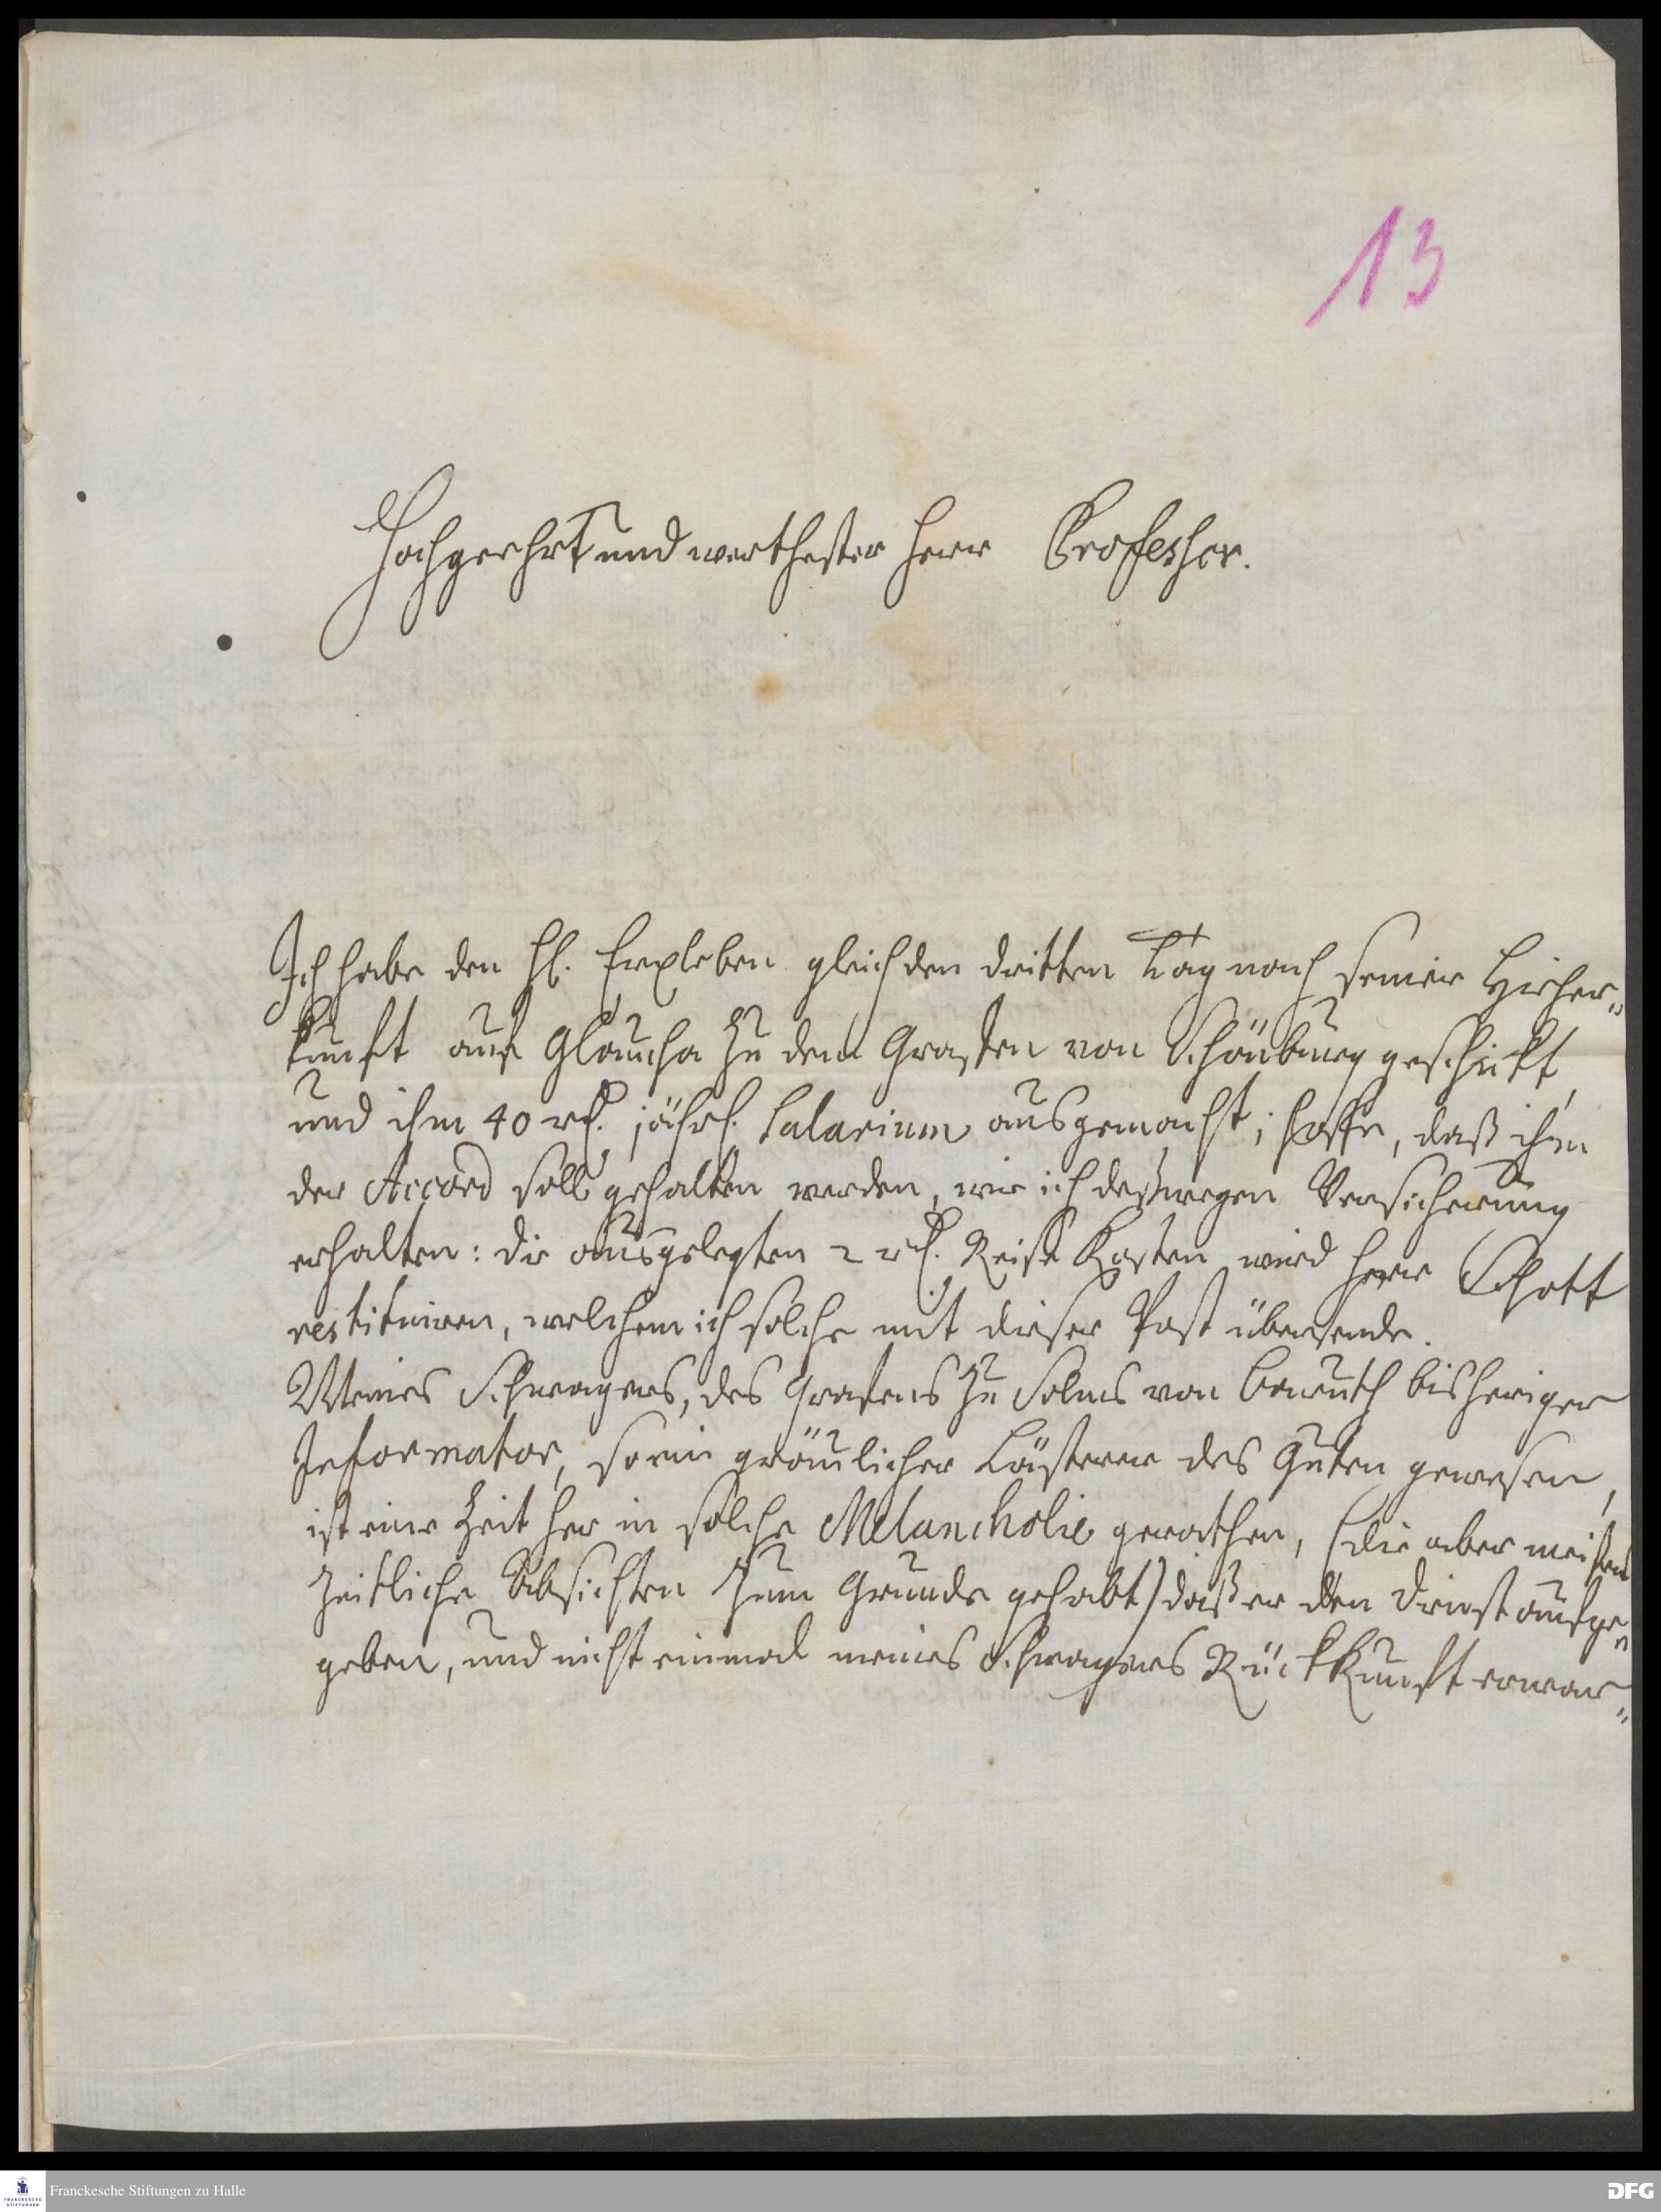 13
Hochgeehrt und werthester Herr Professor.
Ich habe den H. Erxleben gleich den dritten Tag nach seiner Hieher„
kunft auf Glaucha zu dem Grafen von Schönburg geschickt,
und ihm 40 rth. jährl. Salarium ausgemacht; hoffe, daß ihm
der Accord soll gehalten werden, wie ich deßwegen Versicherung
erhalten: die ausgelegten 2 rth. Reise Kosten wird Herr Schott
restituiren, welchem ich solche mit dieser Post übersende.
Meines Schwagers, des Grafens zu Solms von Baruth bisheriger
Informator, so ein gräulicher Lästerer des Guten gewesen,
ist eine Zeit her in solche Melancholie gerathen, (die aber meistens
zeitliche Absichten zum Grunde gehabt) daß er den Dienst aufge„
geben, und nicht einmal meines Schwagers Rückkunfft erwar„
Franckesche Stiftungen zu Halle
FRANCKESCHE
STIFTUNGEN
DFG